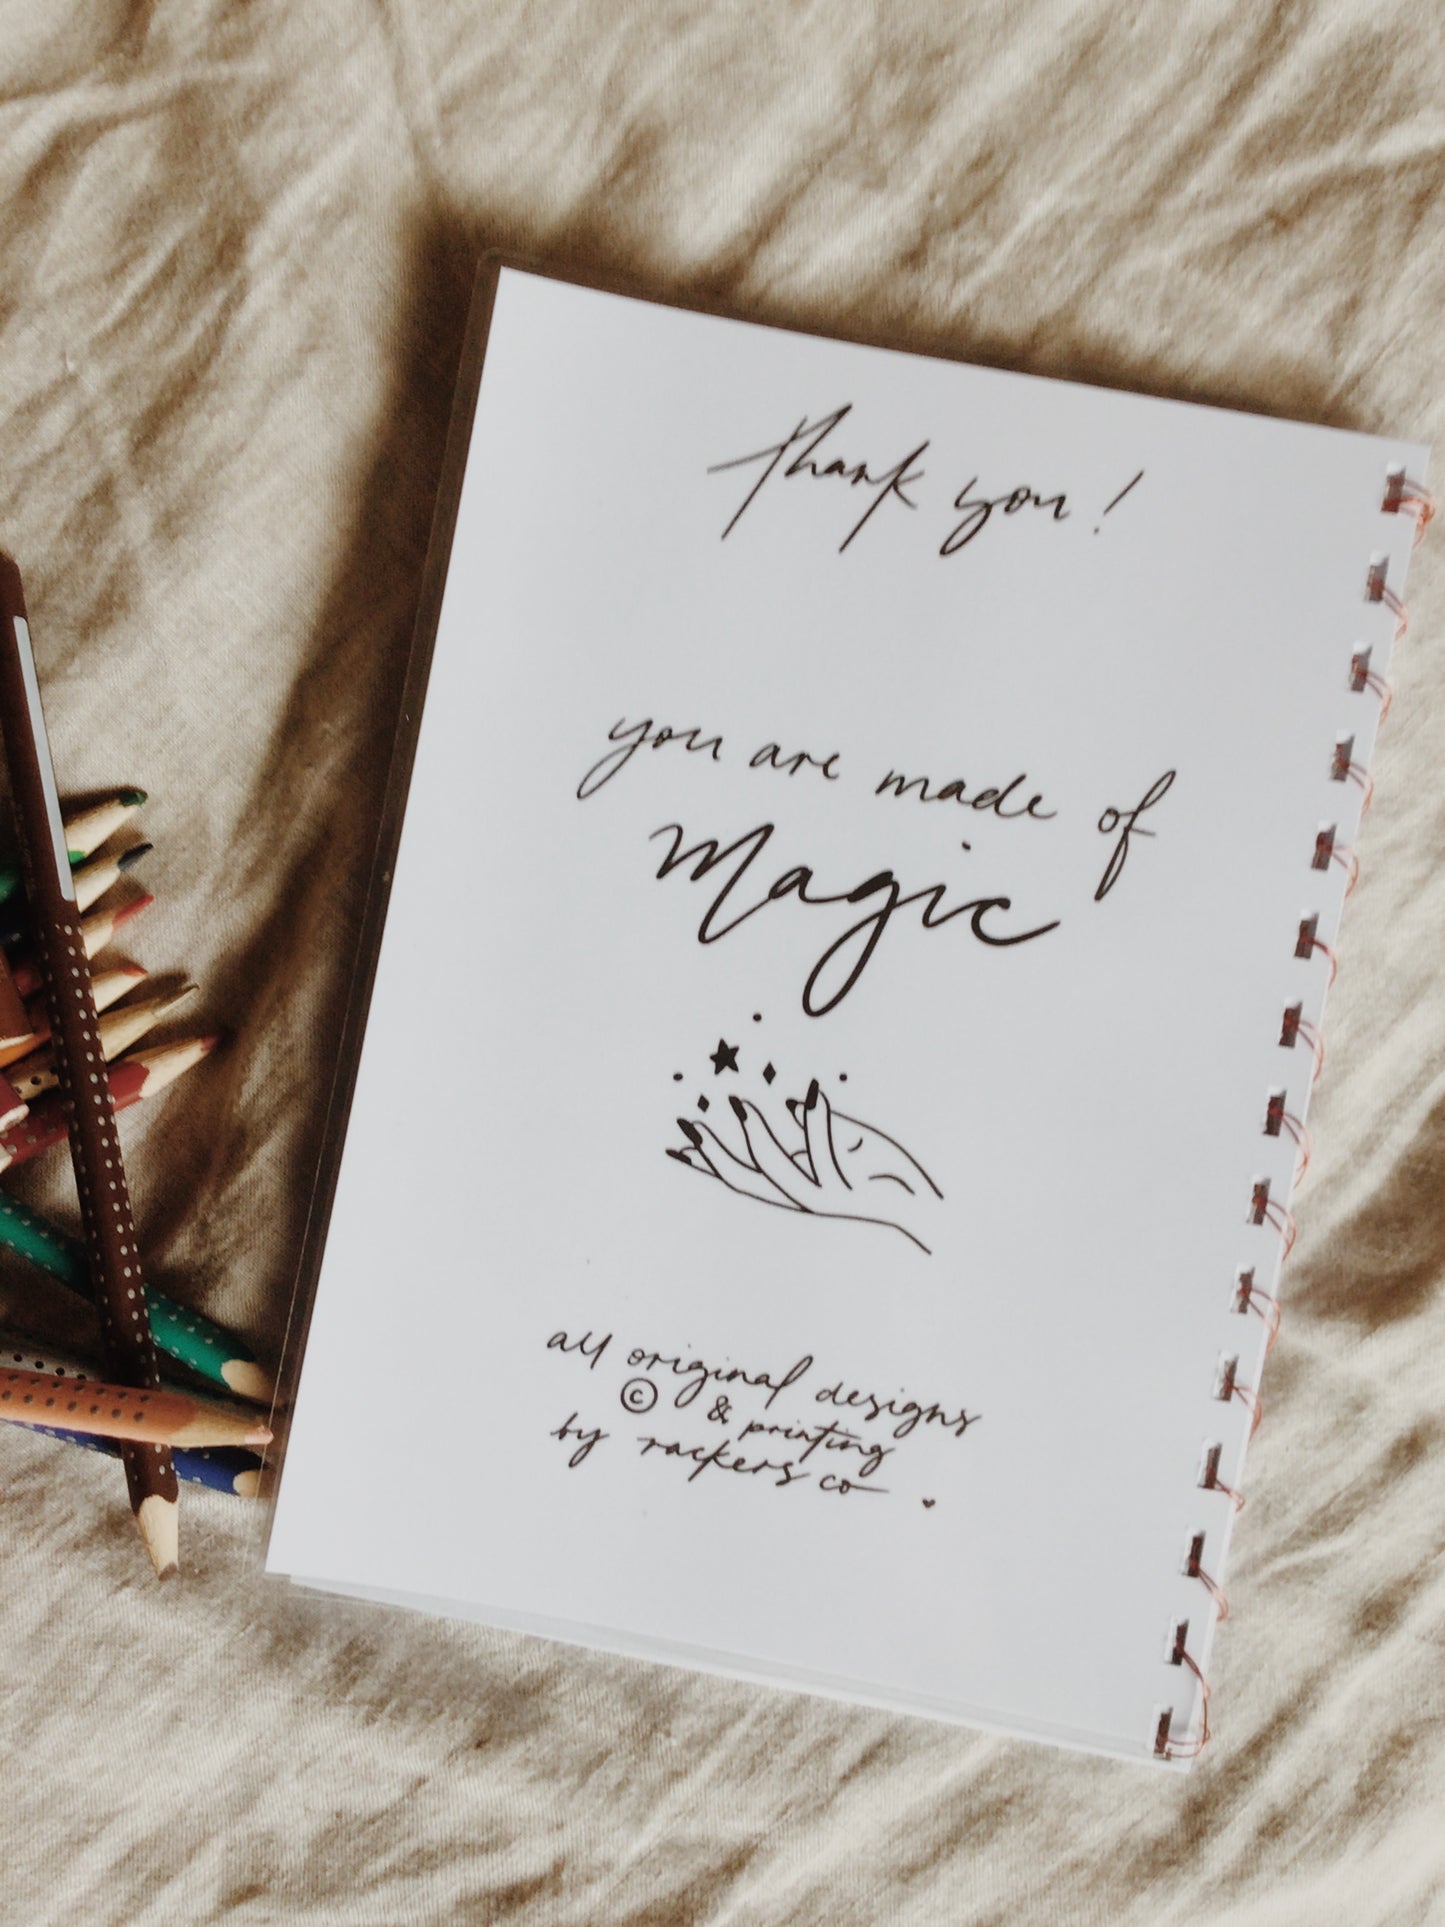 Thank you!
you are made of
Magic
all original designs
© & printing
by rackers co